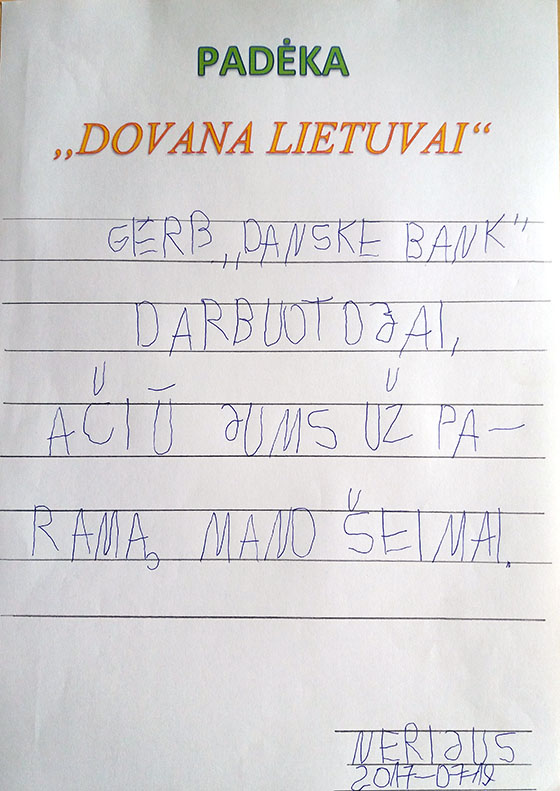 PADĖKA
„DOVANA LIETUVAI“
GERB „DANSKE BANK“
DARBUOTOJAI,
AČIŪ JUMS UŽ PA-
RAMĄ MANO ŠEIMAI.
NERIJUS
2017-0719